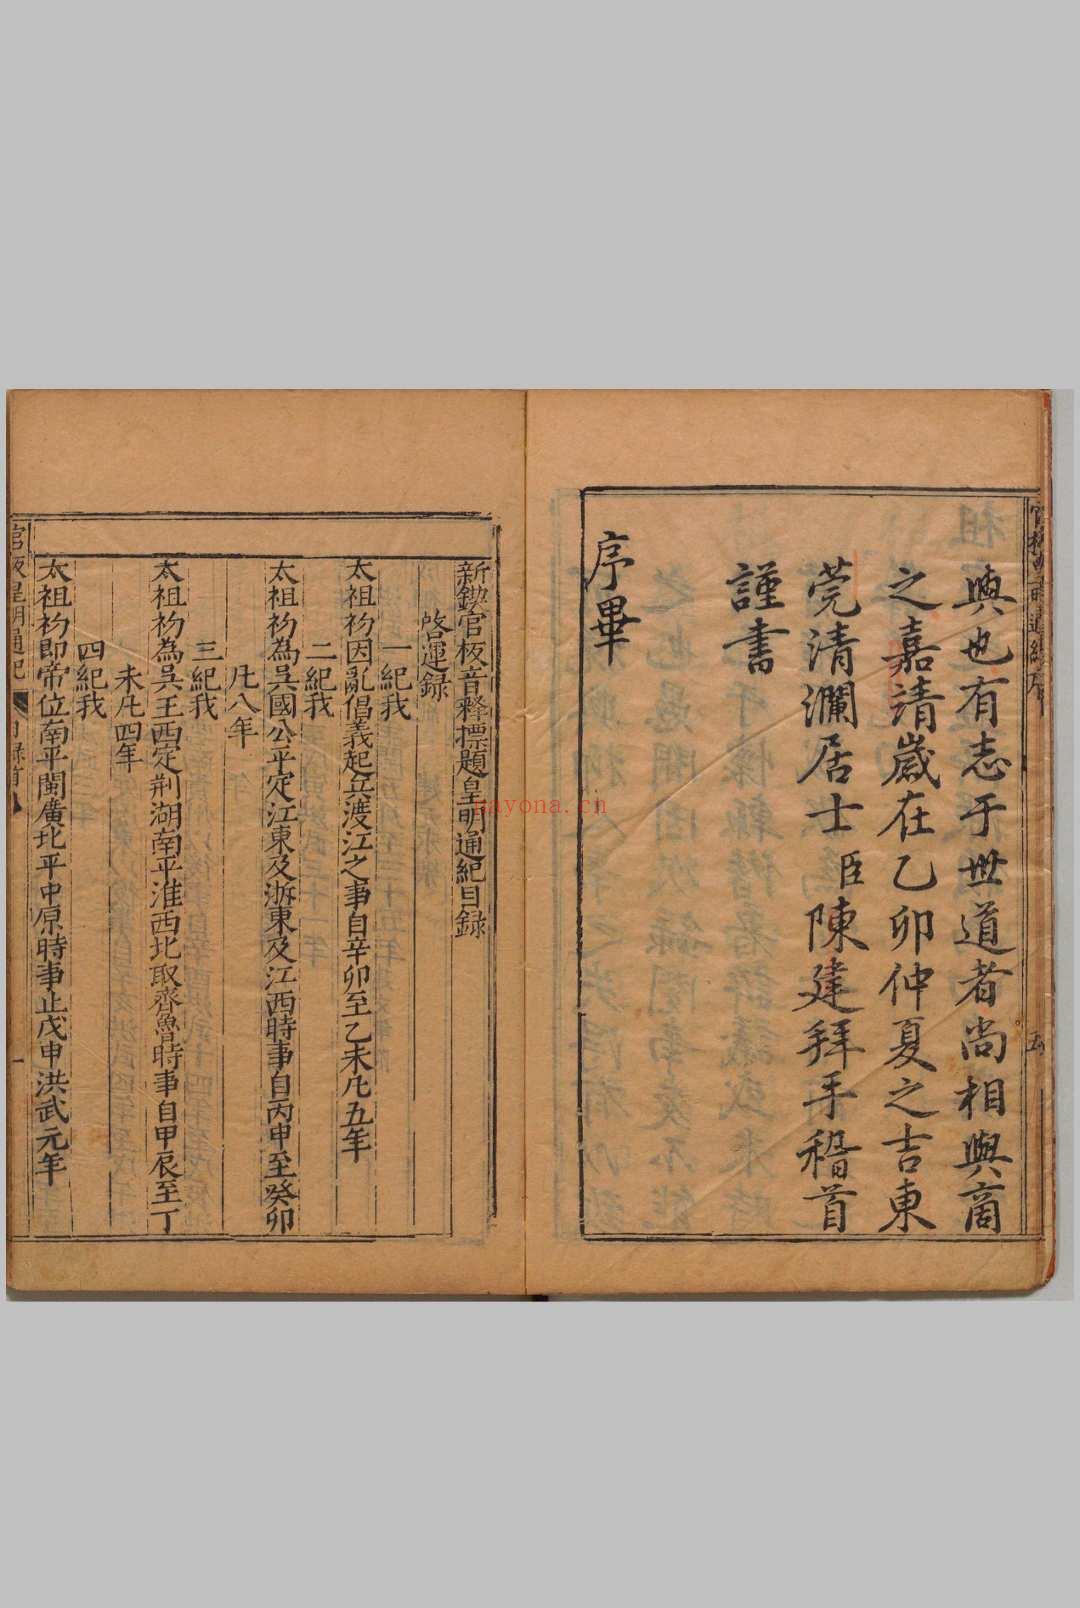 與也有志于世道者尚相與商
之嘉靖歲在乙卯仲夏之吉東
莞清瀾居士臣陳建拜手稽首
謹書
序畢
新鍥官板音釋標題皇明通紀目錄
啓運錄
一紀我
太祖初因亂倡義起兵渡江之事自辛卯至乙未凢五年
二紀我
太祖初為吳國公平定江東及浙東及江西時事自丙申至癸卯
凢八年
三紀我
太祖初為吳王西定荆湖南平淮西北取齊魯時事自甲辰至丁
未凢四年
四紀我
太祖初即帝位南平閩廣北平中原時事止戊申洪武元年
官板皇明通紀
一
nayona.cn